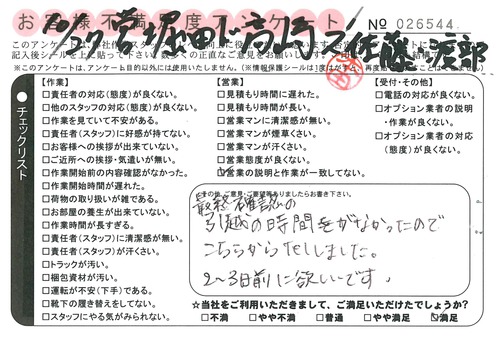 お客様不満足度アンケート
№ 026544
チェックリスト
【作業】
□責任者の対応(態度)が良くない。
□他のスタッフの対応(態度)が良くない。
□作業を見ていて不安がある。
□責任者(スタッフ)に好感が持てない。
□お客様への挨拶が出来ていない。
□ご近所への挨拶・気遣いが無い。
□作業開始前の内容確認がなかった。
□作業開始時間が遅れた。
□荷物の取り扱いが雑である。
□お部屋の養生が出来ていない。
□作業時間が長すぎる。
□責任者(スタッフ)に清潔感が無い。
□責任者(スタッフ)が汗くさい。
□トラックが汚い。
□梱包資材が汚い。
□運転が不安(下手)である。
□靴下の履き替えをしてない。
□スタッフにやる気がみられない。
【営業】
□見積もり時間に遅れた。
□見積もり時間が長い。
□営業マンに清潔感が無い。
□営業マンが煙草くさい。
□営業マンが汗くさい。
□営業態度が良くない。
☑営業の説明と作業が一致してない。
【受付・その他】
□電話の対応が良くない。
□オプション業者の説明・作業が良くない。
□オプション業者の対応(態度)が良くない。
●その他、ご意見・ご要望等ありましたらお書き下さい。
最終確認の
引越の時間をがなかったので
こちらからTELしました。
2〜3日前に欲しいです。
☆当社をご利用いただきまして、ご満足いただけたでしょうか?
□不満 □やや不満 □普通 □やや満足 ☑満足